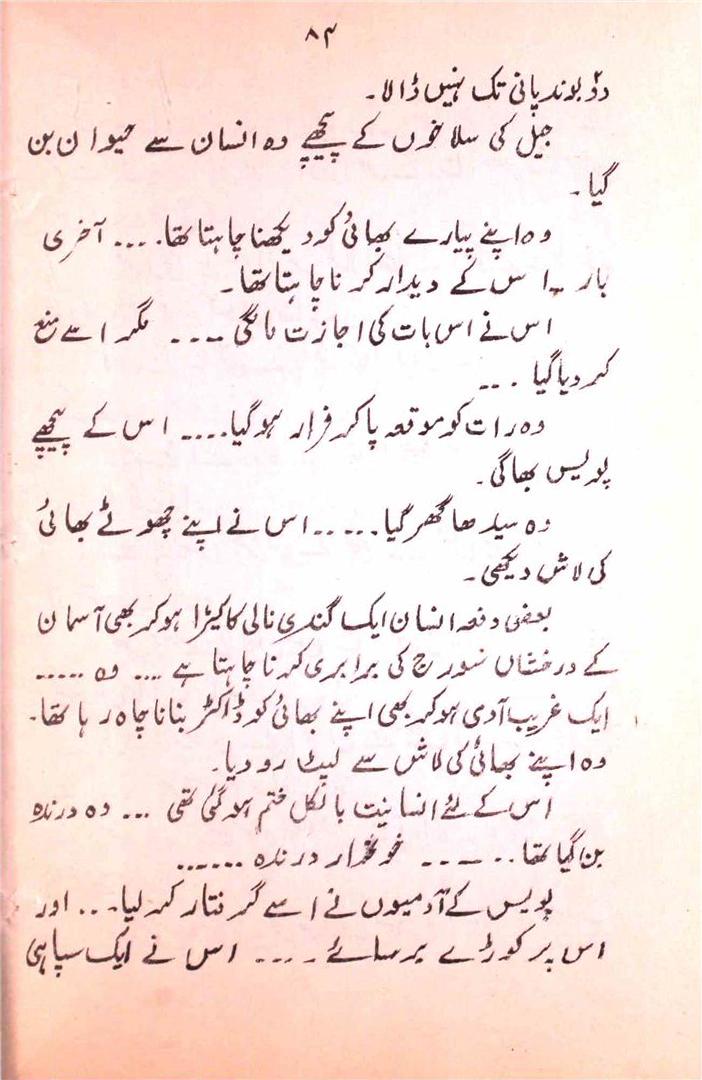 ۸۴
دو بوند پانی تک نہیں ڈالا۔
جیل کی سلاخوں کے پیچھے وہ انسان سے حیوان بن
گیا۔
وہ اپنے پیارے بھائی کو دیکھنا چاہتا تھا.... آخری
بار ۔ اس کے دیدار کرنا چاہتا تھا۔
اس نے اس بات کی اجازت مانگی .... مگر اسے منع
کر دیا گیا ...
وہ رات کو موقعہ پا کر فرار ہو گیا.... اس کے پیچھے
پولیس بھاگی۔
وہ سیدھا گھر گیا..... اس نے اپنے چھوٹے بھائی
کی لاش دیکھی۔
بعض دفعہ انسان ایک گندی نالی کا کیڑا ہو کر بھی آسمان
کے درخشاں سورج کی برابری کرنا چاہتا ہے .... وہ .....
ایک غریب آدمی ہو کر بھی اپنے بھائی کو ڈاکٹر بنانا چاہ رہا تھا۔
وہ اپنے بھائی کی لاش سے لپٹ رو دیا۔
اس کے لئے انسانیت بالکل ختم ہو گئی تھی ... وہ درندہ
بن گیا تھا..... خونخوار درندہ ......
پولیس کے آدمیوں نے اسے گرفتار کر لیا... اور
اس پر کوڑے برسائے .... اس نے ایک سپاہی